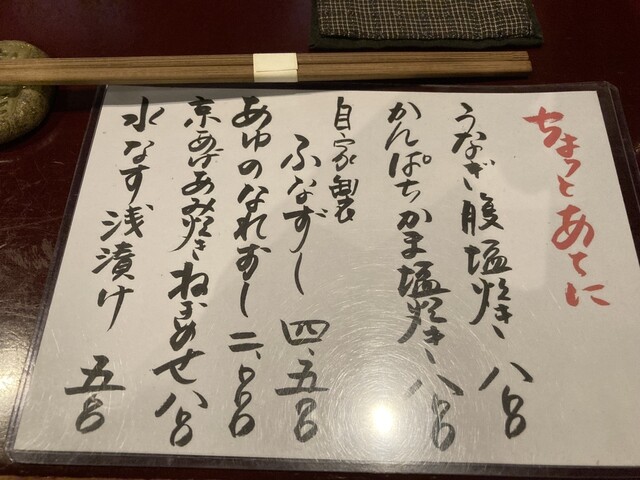 ちょっとあてに
うなぎ腹塩焼き 八〇〇
かんぱちかま塩焼き 八〇〇
自家製
ふなずし 四、五〇〇
あゆのなれずし 二、〇〇〇
京あげあみ焼きねぎのせ 八〇〇
水なす浅漬け 五〇〇